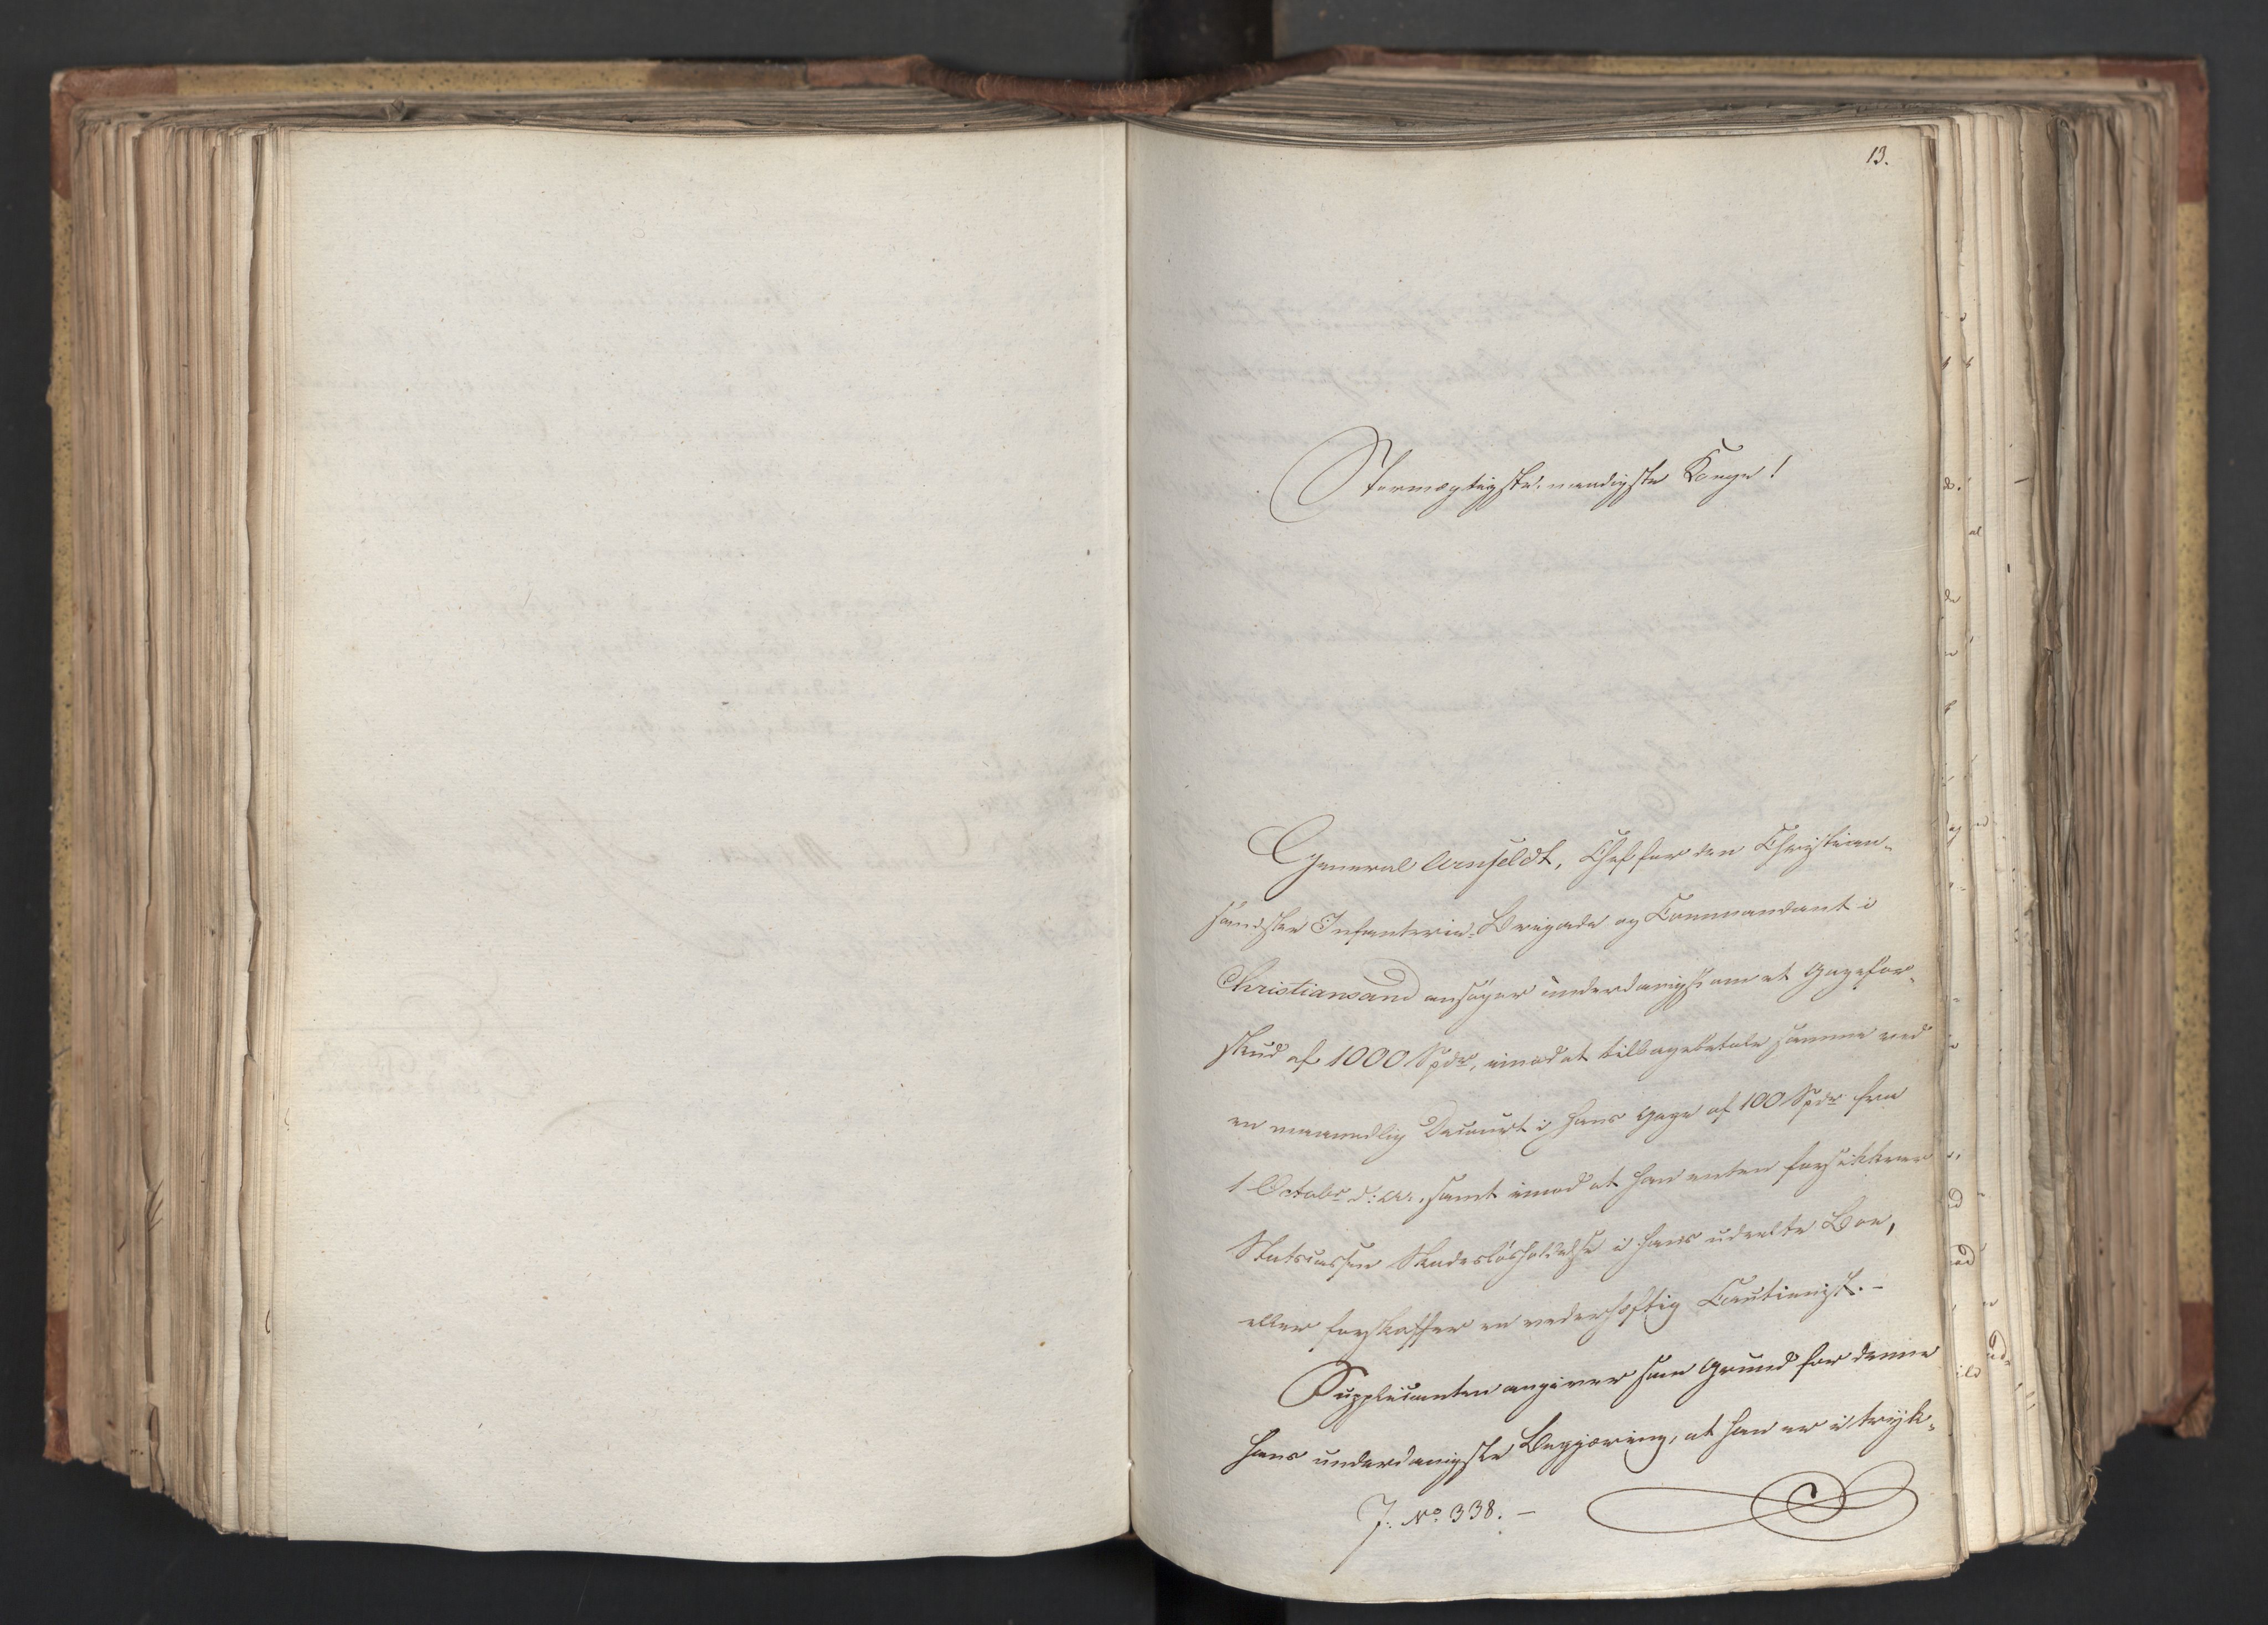 13.
Stormægtigste, naadigste Konge!
General Arnfeldt, Chef for den Christian-
sandske Infanterie-Brigade og Commandant i
Christiansand ansøger underdanigst om et Gagefor-
skud af 1000 Spdr, imod at tilbagebetale samme ved
en maanedlig Decourt i hans Gage af 100 Spdr fra
1 Octobr d: A:, samt imod at han enten forsikkrer
Statscassen Skadesløsholdelse i hans udeelte Boe,
eller forskaffer en vederhæftig Cautionist. -
Supplicanten angiver som Grund for denne
hans underdanigste Begjæring, at han er i tryk-
J: No 338. -